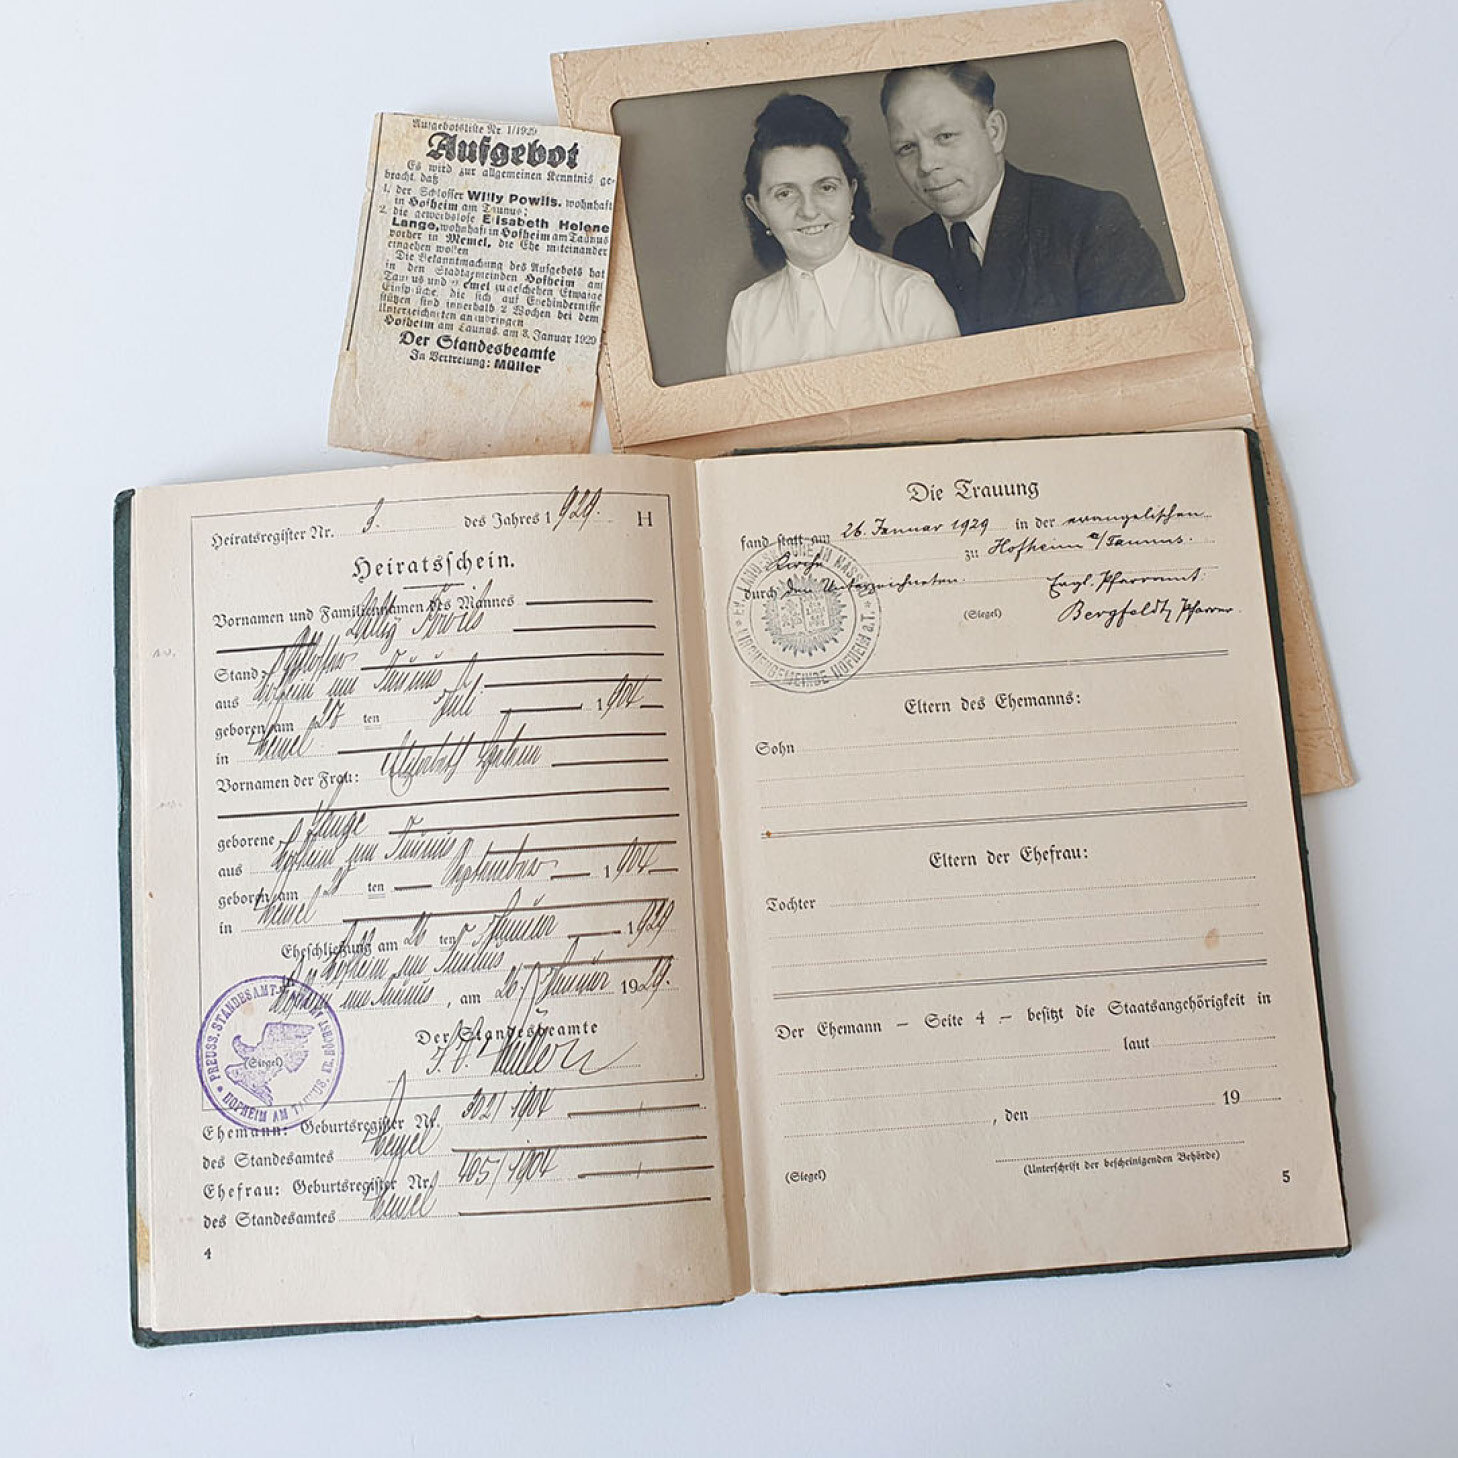 Aufgebotsliste Nr. 1/1929
Aufgebot
Es wird zur allgemeinen Kenntnis ge-
bracht, daß
1. der Schlosser Willy Powils, wohnhaft
in Hofheim am Taunus;
2. die gewerbslose Elisabeth Helene
Lange, wohnhaft in Hofheim am Taunus
vorher in Memel, die Ehe miteinander
eingehen wollen
Die Bekanntmachung des Aufgebots hat
in den Stadtgemeinden Hofheim am
Taunus und Memel zu geschehen Etwaige
Einsprüche, die sich auf Ehehindernisse
stützen sind innerhalb 2 Wochen bei dem
Unterzeichneten anzubringen
Hofheim am Taunus, am 8. Januar 1929
Der Standesbeamte
In Vertretung: Müller
Heiratsregister Nr. 3. des Jahres 1929. H
Heiratsschein.
Vornamen und Familiennamen des Mannes
Willy Powils
Stand Schlosser
aus Hofheim am Taunus
geboren am ten Juli 1904
in Memel
Vornamen der Frau: Elisabeth Helene
geborene Lange
aus Hofheim am Taunus
geboren am ten September 1904
in Memel
Eheschließung am 26 ten Januar 1929
in Hofheim am Taunus
Hofheim am Taunus, am 26. Januar 1929.
Der Standesbeamte
J. V. Müller
(Siegel)
PREUSS. STANDESAMT HOFHEIM AM TAUNUS
Ehemann: Geburtsregister Nr. 302/1904
des Standesamtes Memel
Ehefrau: Geburtsregister Nr. 405/1904
des Standesamtes Memel
4
Die Trauung
fand statt am 26. Januar 1929 in der evangelischen
Kirche zu Hofheim a/Taunus.
durch den Unterzeichneten. Evgl. Pfarramt.
(Siegel) Bergfeldt, Pfarrer.
EV. LANDESKIRCHE IN NASSAU
KIRCHENGEMEINDE HOFHEIM a.T.
Eltern des Ehemanns:
Sohn
Eltern der Ehefrau:
Tochter
Der Ehemann – Seite 4 – besitzt die Staatsangehörigkeit in
laut
, den 19
(Siegel)
(Unterschrift der bescheinigenden Behörde)
5